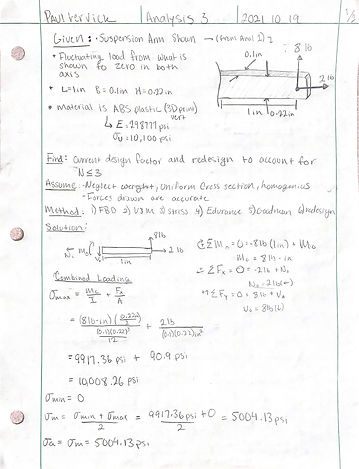 Paul Vervick Analysis 3 2021.10.19 1/2
Given: · Suspension Arm Shown → (from Anal 2)
8 lb
• Fluctuating load from what is
shown to zero in both
axis
0.1in
2 lb
1in 0.22in
• L=1in B=0.1in H=0.22in
• Material is ABS plastic (3D print)
vert
↳ E=298777psi
σu=10,100 psi
Find: current design factor and redesign to account for
N≤3
Assume: ·Neglect weight, Uniform Cross section, homogenius
·Forces drawn are accurate
Method: 1) FBD 2) V&M 3) Stress 4) Edurance 5) Goodman 6) redesign
Solution:
8lb
2 lb
1in
ΣM = 0 = -8lb(1in) + Mo
Mo = 8lb·in
ΣFx = 0 = -2lb + No
No = 2lb(←)
+↑ΣFy = 0 = 8lb + Vo
Vo = 8lb(↓)
Combined Loading
σmax = Mc/I + Fx/A
= (8lb·in)(0.22/2) / (0.1)(0.22)³/12 + 2lb/(0.1)(0.22)in²
= 9917.36 psi + 90.9 psi
= 10,008.26 psi
σmin = 0
σm = (σmin + σmax)/2 = (9917.36psi + 0)/2 = 5004.13psi
σa = σm = 5004.13psi